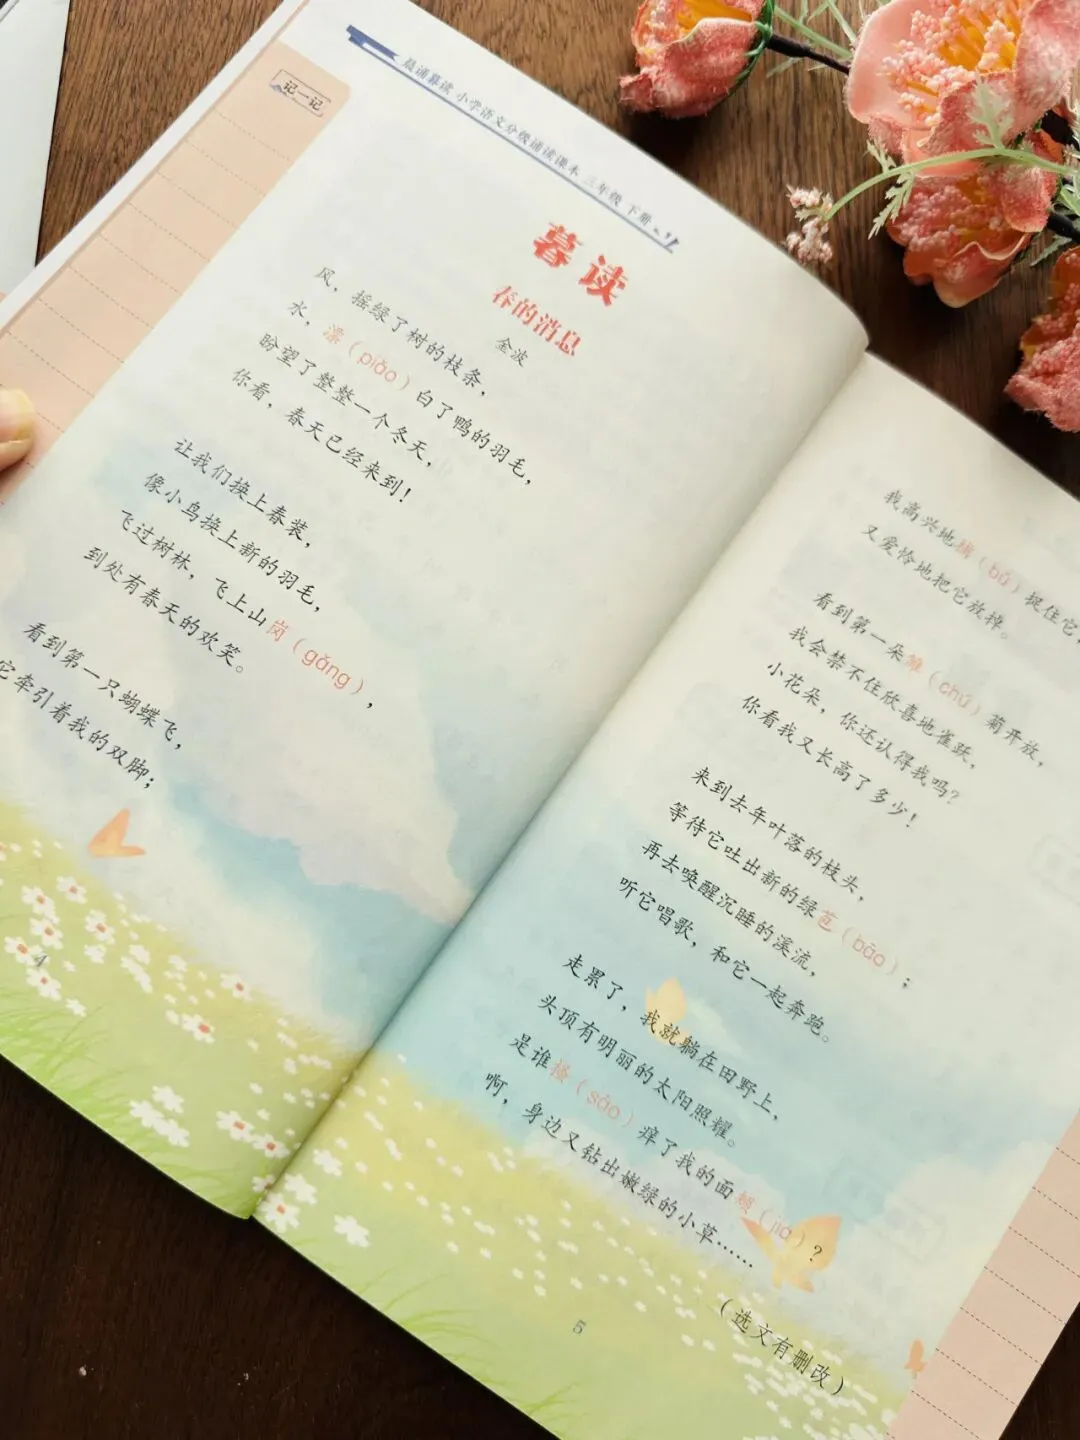 晨诵暮读 小学语文分级诵读课本 三年级 下册
记一记
暮读
春的消息
金波
风，摇绿了树的枝条，
水，漂（piǎo）白了鸭的羽毛，
盼望了整整一个冬天，
你看，春天已经来到！
让我们换上春装，
像小鸟换上新的羽毛，
飞过树林，飞上山岗（gǎng），
到处有春天的欢笑。
看到第一只蝴蝶飞，
它牵引着我的双脚；
4
我高兴地捕（bǔ）捉住它，
又爱怜地把它放掉。
看到第一朵雏（chú）菊开放，
我会禁不住欣喜地雀跃，
小花朵，你还认得我吗？
你看我又长高了多少！
来到去年叶落的枝头，
等待它吐出新的绿苞（bāo）；
再去唤醒沉睡的溪流，
听它唱歌，和它一起奔跑。
走累了，我就躺在田野上，
头顶有明丽的太阳照耀。
是谁搔（sāo）痒了我的面颊（jiá）？
啊，身边又钻出嫩绿的小草……
（选文有删改）
5